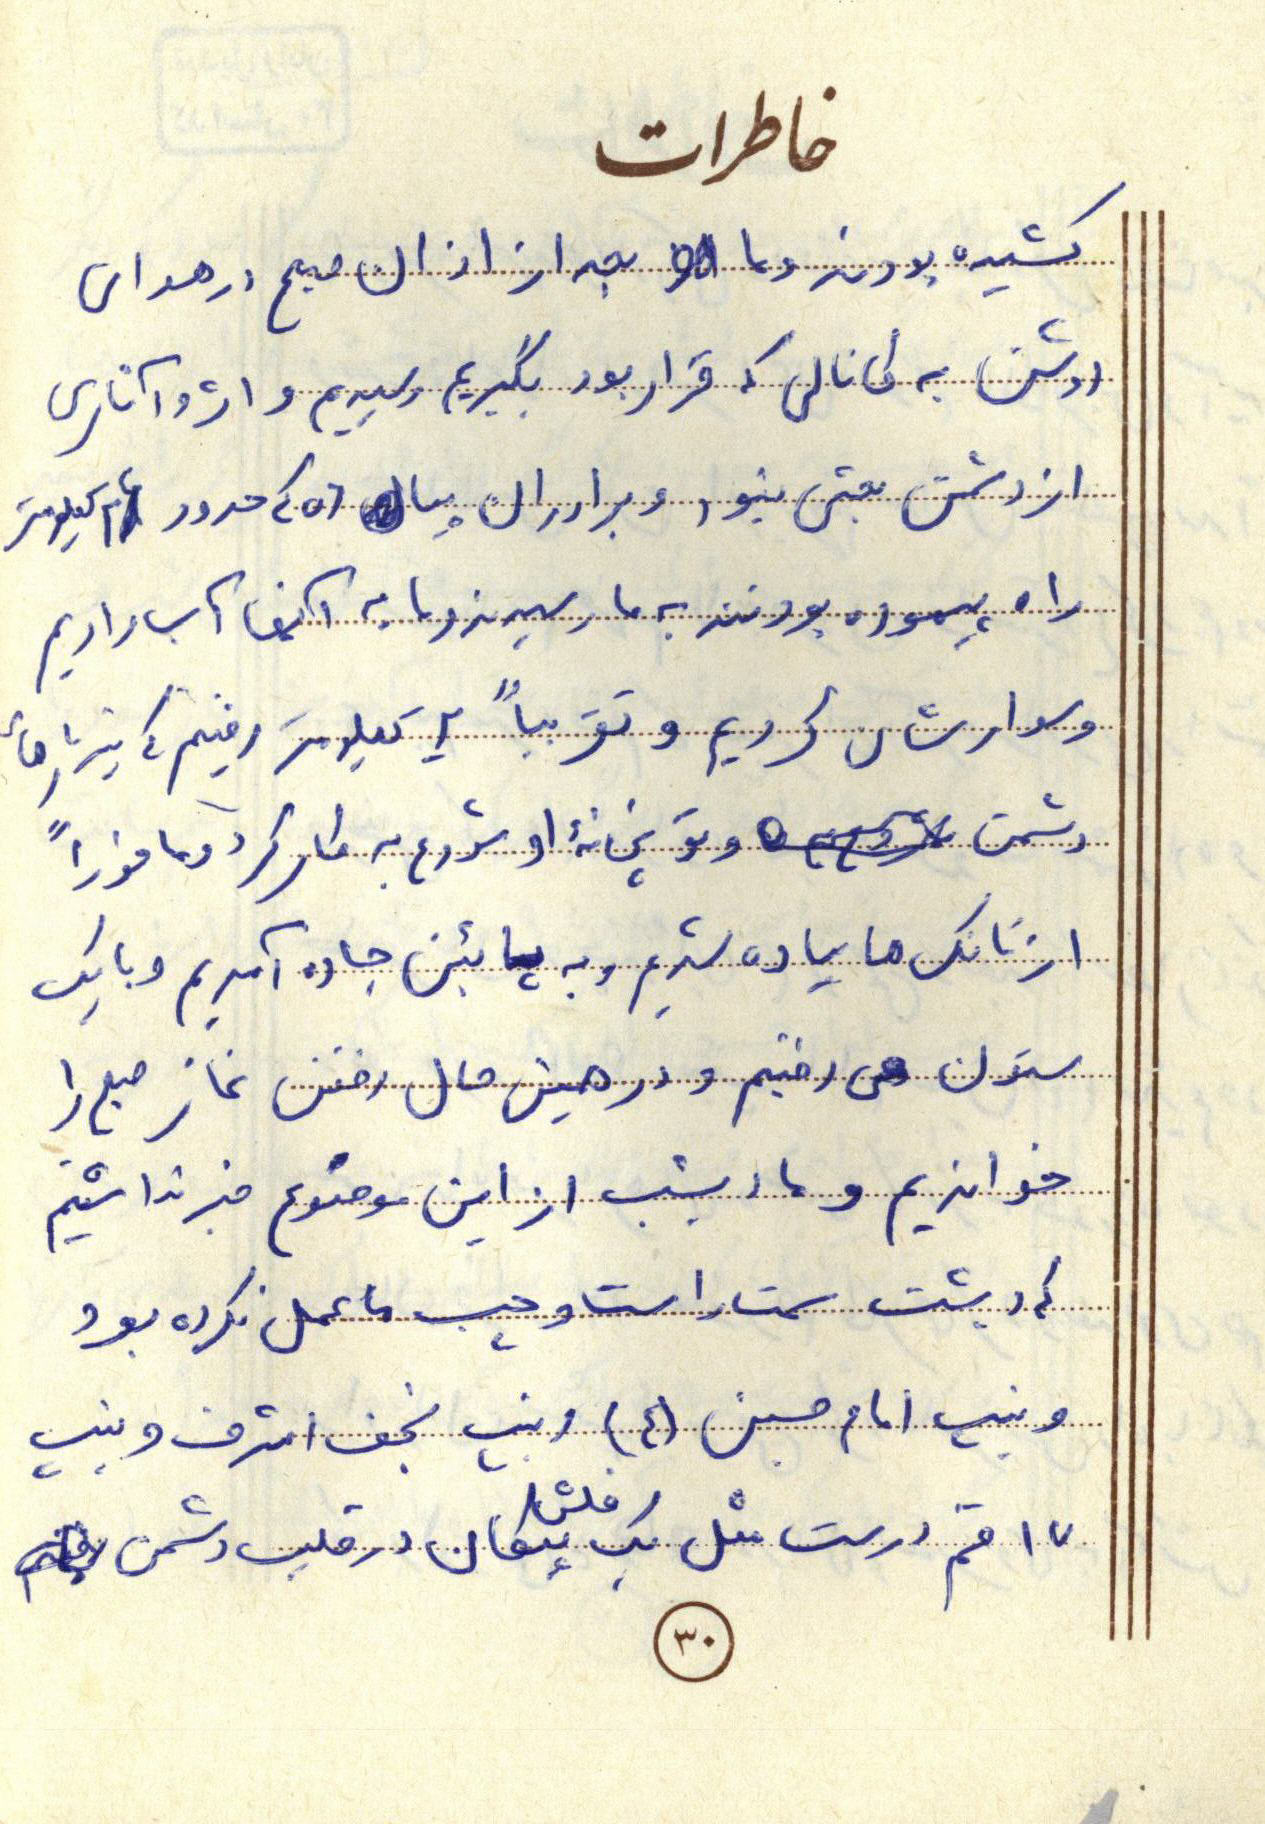 خاطرات
کشیده بودند و ما بعد از اذان صبح در هوای
روشن به کانالی که قرار بود بگیریم رسیدیم و اثر و آثاری
از دشمن بعثی نبود و برادران پیاده که حدود کیلومتر
راه پیموده بودند به ما رسیدند و ما به آنها آب دادیم
و سوارشان کردیم و تقریباً ۲ کیلومتر رفتیم که تیربارهای
دشمن و توپخانهٔ او شروع به کار کرد و ما فوراً
از تانک ها پیاده شدیم و به پائین جاده آمدیم و با یک
ستون می رفتیم و در همین حال رفتن نماز صبح را
خواندیم و ما دیشب از این موضوع خبر نداشتیم
که دیشب سمت راست و چپ ما عمل نکرده بود
و تیپ امام حسین (ع) و تیپ نجف اشرف و تیپ
۱۷ قم درست مثل یک پیکان فلش در قلب دشمن
۳۰